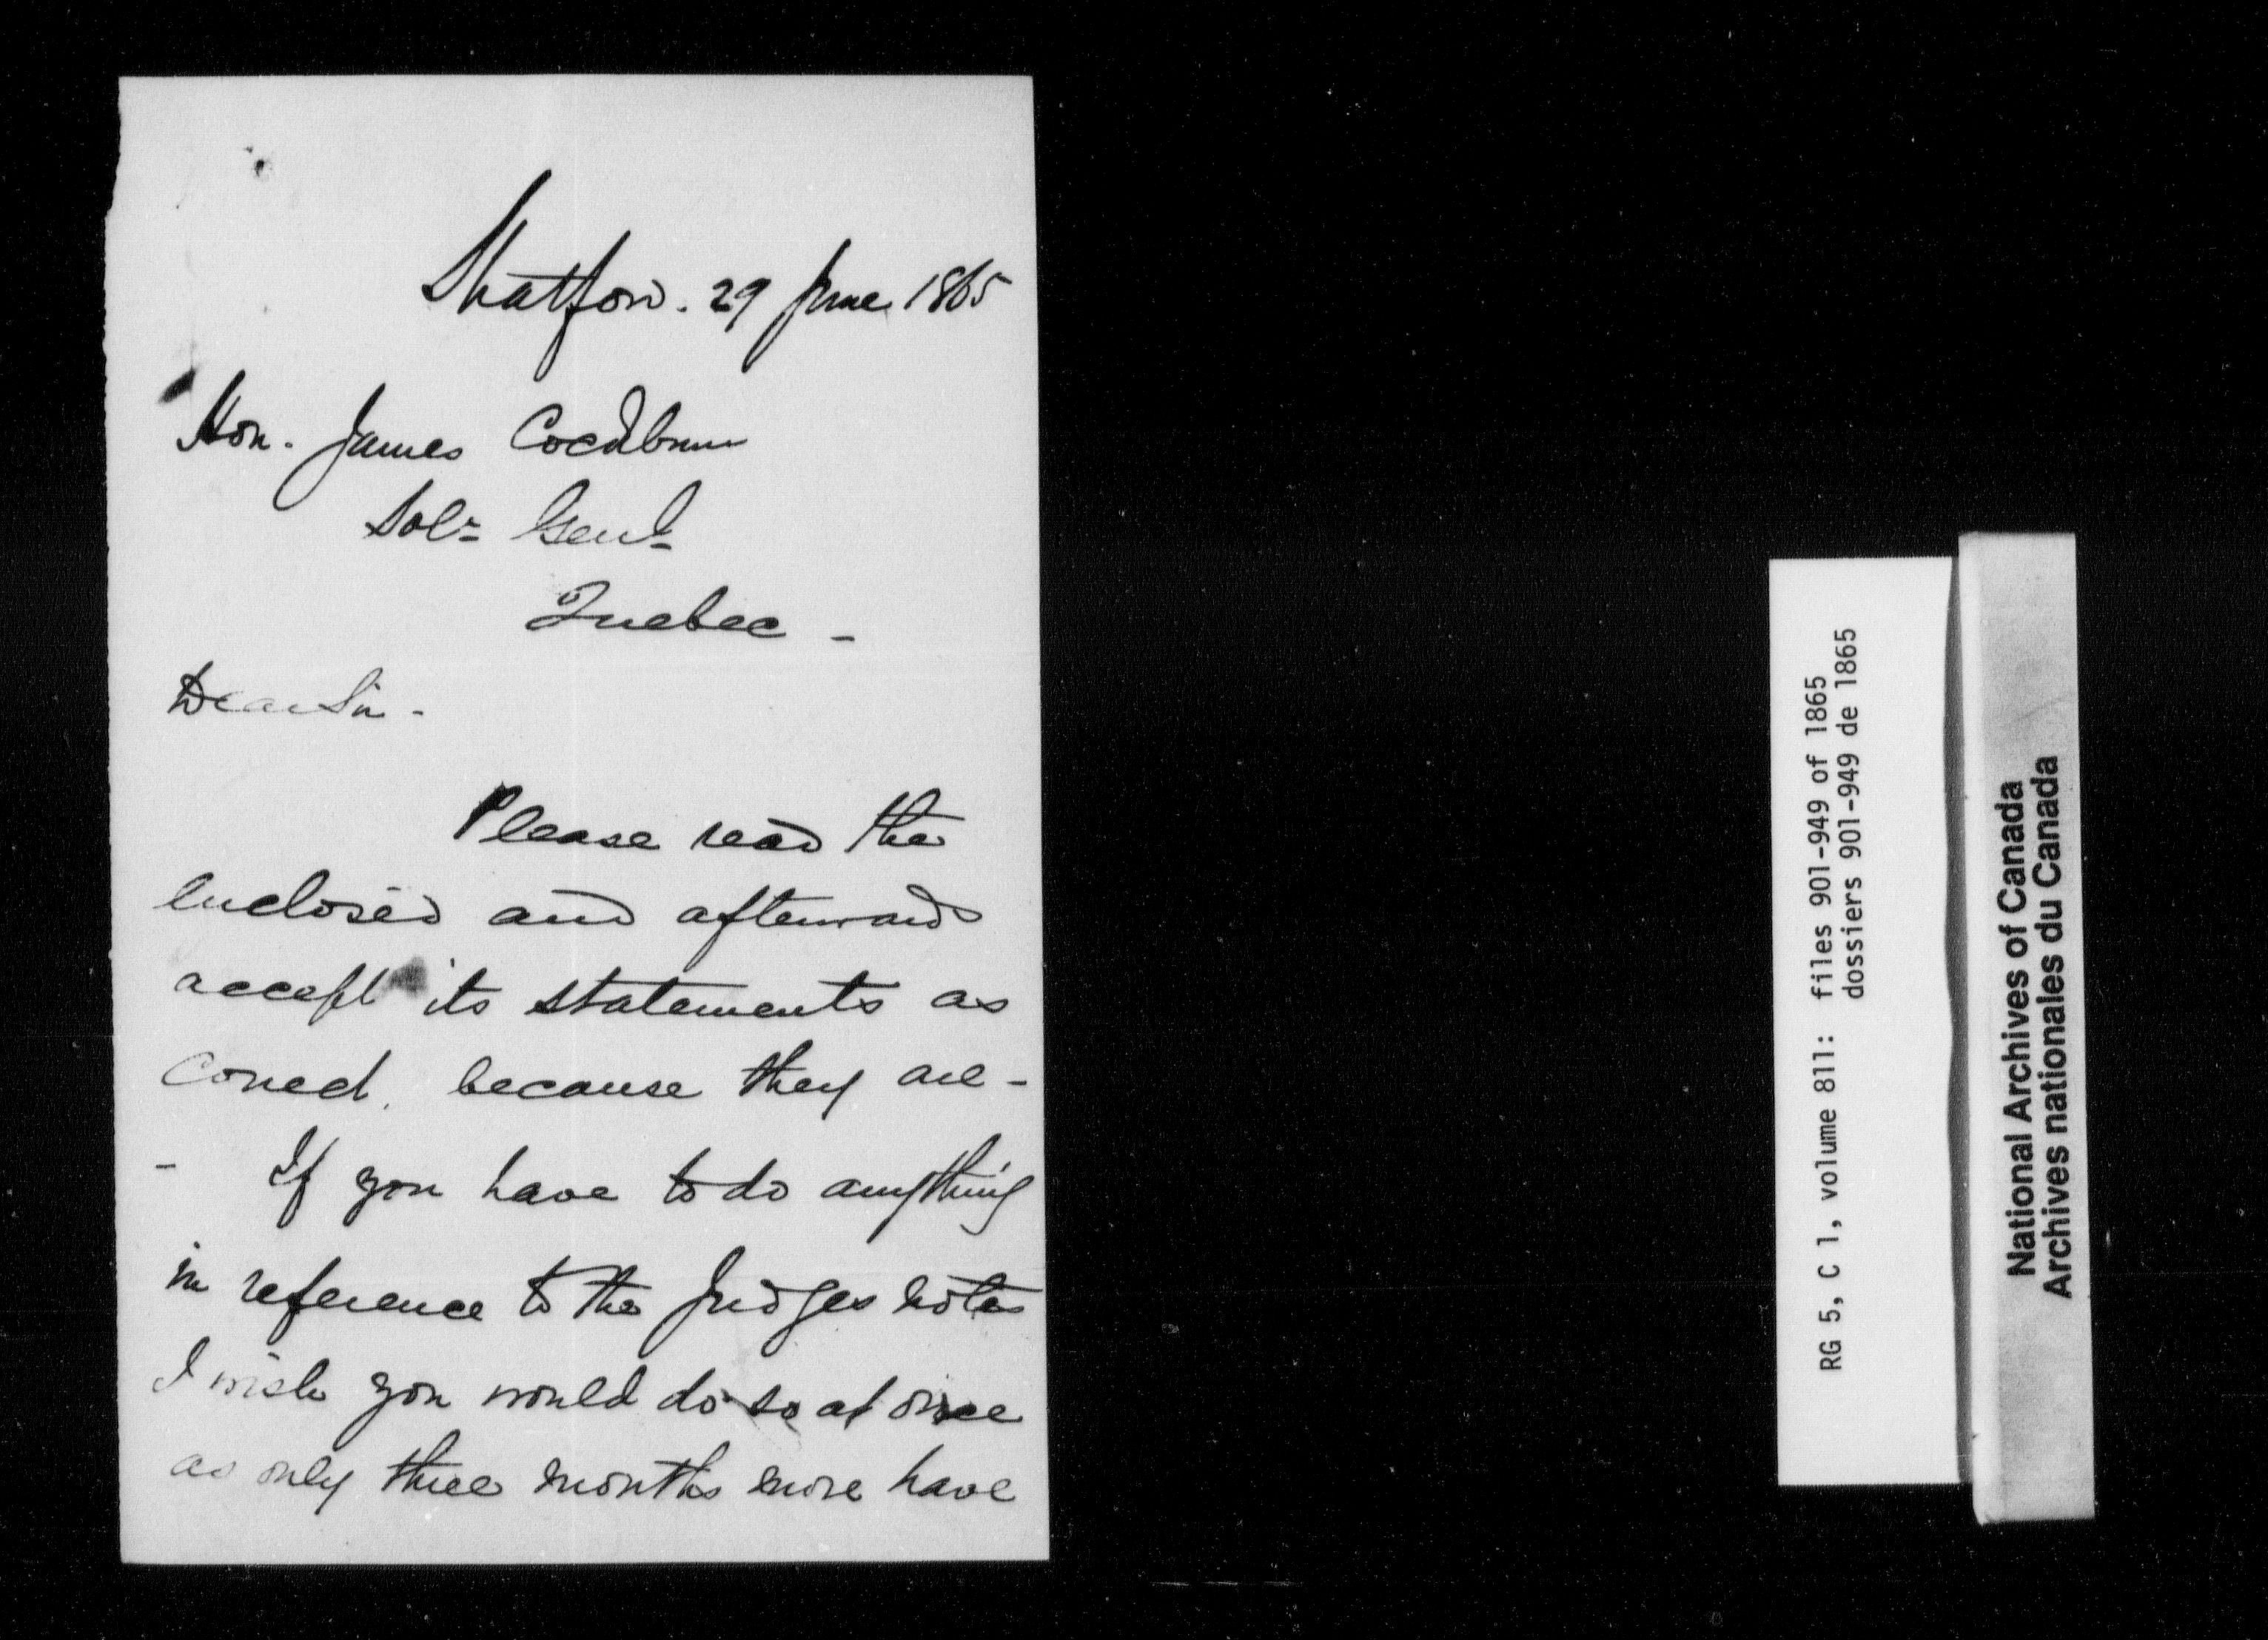 Stratford. 29 June 1865
Hon. James Cockburn
Solr Genl
Quebec -
Dear Sir -
Please read the
enclosed and afterwards
accept its statements as
correct. because they are -
- If you have to do anything
in reference to the Judges notes
I wish you would do so at once
as only three months more have
RG 5, C 1, volume 811: files 901-949 of 1865
dossiers 901-949 de 1865
National Archives of Canada
Archives nationales du Canada